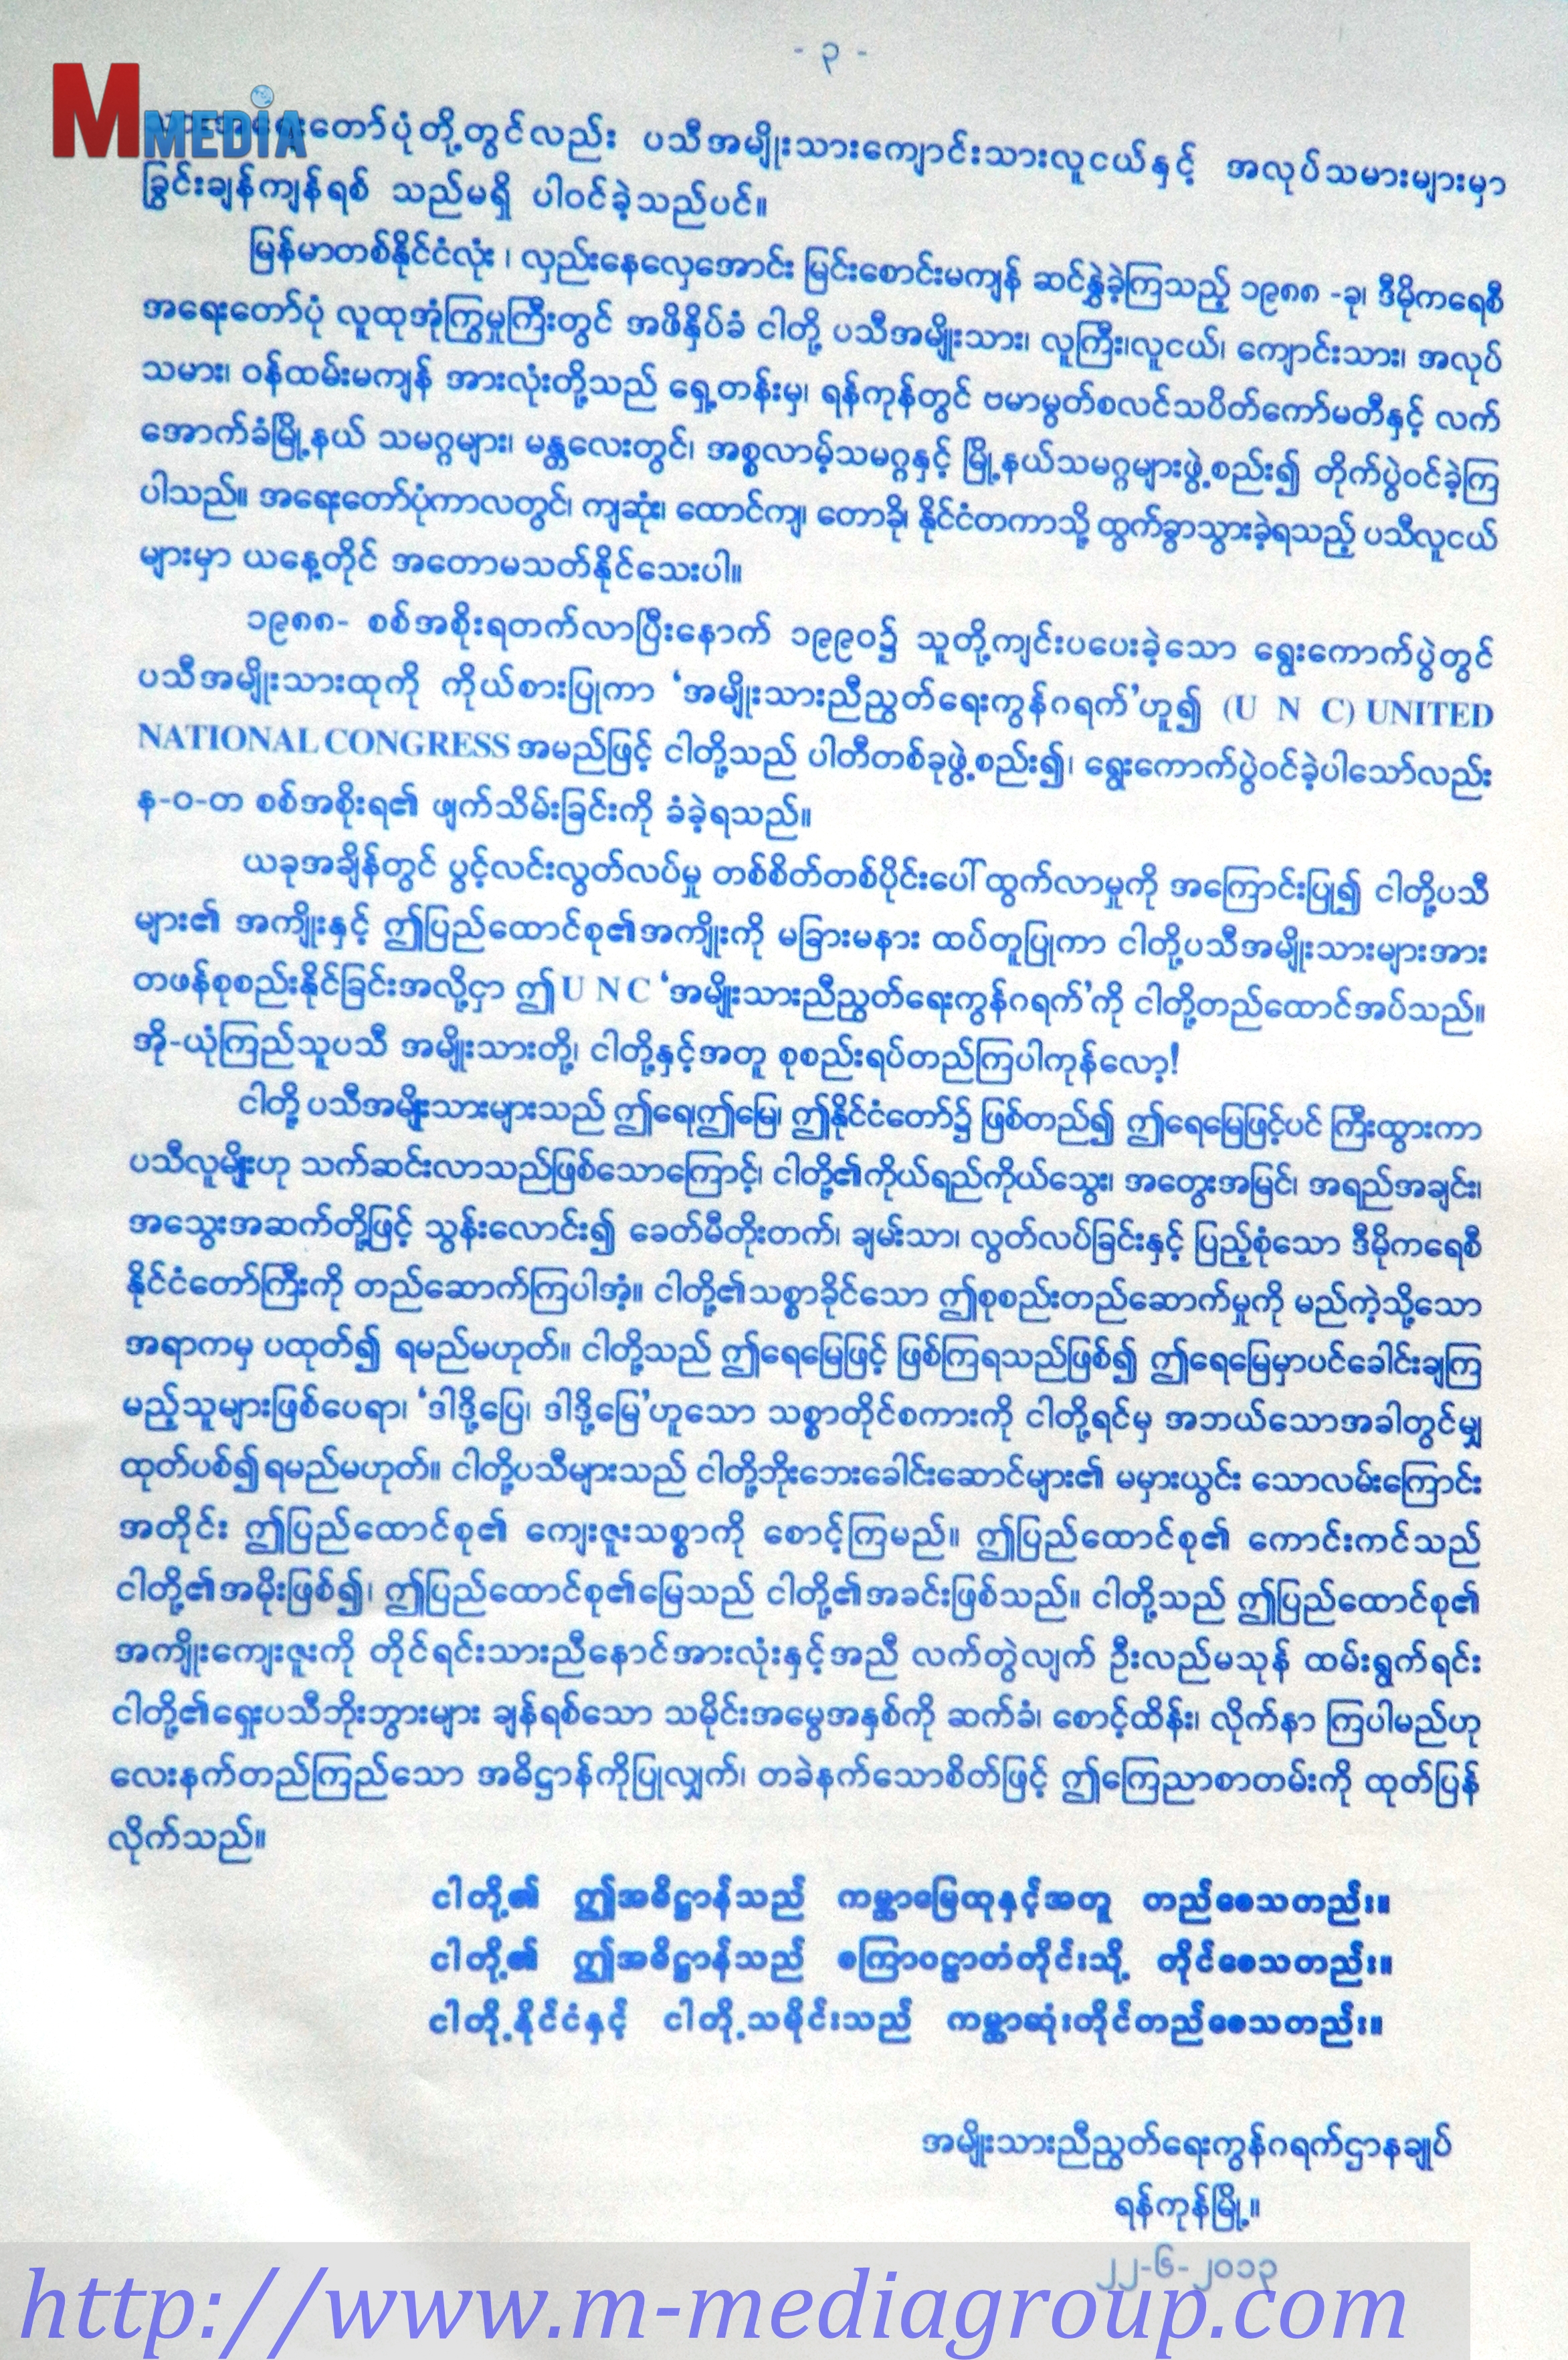 - ၃ -
M MEDIA
တော်ပုံတို့တွင်လည်း ပသီအမျိုးသားကျောင်းသားလူငယ်နှင့် အလုပ်သမားများမှာ
ခြွင်းချန်ကျန်ရစ် သည်မရှိ ပါဝင်ခဲ့သည်ပင်။
မြန်မာတစ်နိုင်ငံလုံး ၊ လှည်းနေလှေအောင်း မြင်းစောင်းမကျန် ဆင်နွှဲခဲ့ကြသည့် ၁၉၈၈ -ခု၊ ဒီမိုကရေစီ
အရေးတော်ပုံ လူထုအုံကြွမှုကြီးတွင် အဖိနှိပ်ခံ ငါတို့ ပသီအမျိုးသား၊ လူကြီး၊လူငယ်၊ ကျောင်းသား၊ အလုပ်
သမား၊ ဝန်ထမ်းမကျန် အားလုံးတို့သည် ရှေ့တန်းမှ၊ ရန်ကုန်တွင် ဗမာမွတ်စလင်သပိတ်ကော်မတီနှင့် လက်
အောက်ခံမြို့နယ် သမဂ္ဂများ၊ မန္တလေးတွင်၊ အစ္စလာမ့်သမဂ္ဂနှင့် မြို့နယ်သမဂ္ဂများဖွဲ့စည်း၍ တိုက်ပွဲဝင်ခဲ့ကြ
ပါသည်။ အရေးတော်ပုံကာလတွင်၊ ကျဆုံး၊ ထောင်ကျ၊ တောခို၊ နိုင်ငံတကာသို့ ထွက်ခွာသွားခဲ့ရသည့် ပသီလူငယ်
များမှာ ယနေ့တိုင် အတောမသတ်နိုင်သေးပါ။
၁၉၈၈- စစ်အစိုးရတက်လာပြီးနောက် ၁၉၉၀၌ သူတို့ကျင်းပပေးခဲ့သော ရွေးကောက်ပွဲတွင်
ပသီအမျိုးသားထုကို ကိုယ်စားပြုကာ ‘အမျိုးသားညီညွတ်ရေးကွန်ဂရက်’ဟူ၍ (U N C) UNITED
NATIONAL CONGRESS အမည်ဖြင့် ငါတို့သည် ပါတီတစ်ခုဖွဲ့စည်း၍၊ ရွေးကောက်ပွဲဝင်ခဲ့ပါသော်လည်း
န-ဝ-တ စစ်အစိုးရ၏ ဖျက်သိမ်းခြင်းကို ခံခဲ့ရသည်။
ယခုအချိန်တွင် ပွင့်လင်းလွတ်လပ်မှု တစ်စိတ်တစ်ပိုင်းပေါ် ထွက်လာမှုကို အကြောင်းပြု၍ ငါတို့ပသီ
များ၏ အကျိုးနှင့် ဤပြည်ထောင်စု၏အကျိုးကို မခြားမနား ထပ်တူပြုကာ ငါတို့ပသီအမျိုးသားများအား
တဖန်စုစည်းနိုင်ခြင်းအလို့ငှာ ဤ U N C ‘အမျိုးသားညီညွတ်ရေးကွန်ဂရက်’ကို ငါတို့တည်ထောင်အပ်သည်။
အို-ယုံကြည်သူပသီ အမျိုးသားတို့၊ ငါတို့နှင့်အတူ စုစည်းရပ်တည်ကြပါကုန်လော့!
ငါတို့ ပသီအမျိုးသားများသည် ဤရေ၊ဤမြေ၊ ဤနိုင်ငံတော်၌ ဖြစ်တည်၍ ဤရေမြေဖြင့်ပင် ကြီးထွားကာ
ပသီလူမျိုးဟု သက်ဆင်းလာသည်ဖြစ်သောကြောင့်၊ ငါတို့၏ကိုယ်ရည်ကိုယ်သွေး၊ အတွေးအမြင်၊ အရည်အချင်း၊
အသွေးအဆက်တို့ဖြင့် သွန်းလောင်း၍ ခေတ်မီတိုးတက်၊ ချမ်းသာ၊ လွတ်လပ်ခြင်းနှင့် ပြည့်စုံသော ဒီမိုကရေစီ
နိုင်ငံတော်ကြီးကို တည်ဆောက်ကြပါအံ့။ ငါတို့၏သစ္စာခိုင်သော ဤစုစည်းတည်ဆောက်မှုကို မည်ကဲ့သို့သော
အရာကမှ ပထုတ်၍ ရမည်မဟုတ်။ ငါတို့သည် ဤရေမြေဖြင့် ဖြစ်ကြရသည်ဖြစ်၍ ဤရေမြေမှာပင်ခေါင်းချကြ
မည့်သူများဖြစ်ပေရာ၊ ‘ဒါဒို့ပြေ၊ ဒါဒို့မြေ’ဟူသော သစ္စာတိုင်စကားကို ငါတို့ရင်မှ အဘယ်သောအခါတွင်မျှ
ထုတ်ပစ်၍ရမည်မဟုတ်။ ငါတို့ပသီများသည် ငါတို့ဘိုးဘေးခေါင်းဆောင်များ၏ မမှားယွင်း သောလမ်းကြောင်း
အတိုင်း ဤပြည်ထောင်စု၏ ကျေးဇူးသစ္စာကို စောင့်ကြမည်။ ဤပြည်ထောင်စု၏ ကောင်းကင်သည်
ငါတို့၏အမိုးဖြစ်၍၊ ဤပြည်ထောင်စု၏မြေသည် ငါတို့၏အခင်းဖြစ်သည်။ ငါတို့သည် ဤပြည်ထောင်စု၏
အကျိုးကျေးဇူးကို တိုင်ရင်းသားညီနောင်အားလုံးနှင့်အညီ လက်တွဲလျက် ဦးလည်မသုန် ထမ်းရွက်ရင်း
ငါတို့၏ရှေးပသီဘိုးဘွားများ ချန်ရစ်သော သမိုင်းအမွေအနှစ်ကို ဆက်ခံ၊ စောင့်ထိန်း၊ လိုက်နာ ကြပါမည်ဟု
လေးနက်တည်ကြည်သော အဓိဋ္ဌာန်ကိုပြုလျှက်၊ တခဲနက်သောစိတ်ဖြင့် ဤကြေညာစာတမ်းကို ထုတ်ပြန်
လိုက်သည်။
ငါတို့၏ ဤအဓိဋ္ဌာန်သည် ကမ္ဘာမြေထုနှင့်အတူ တည်စေသတည်း။
ငါတို့၏ ဤအဓိဋ္ဌာန်သည် စကြာဝဠာတံတိုင်းသို့ တိုင်စေသတည်း။
ငါတို့နိုင်ငံနှင့် ငါတို့သမိုင်းသည် ကမ္ဘာဆုံးတိုင်တည်စေသတည်း။
အမျိုးသားညီညွတ်ရေးကွန်ဂရက်ဌာနချုပ်
ရန်ကုန်မြို့။
၂၂-၆-၂၀၁၃
http://www.m-mediagroup.com